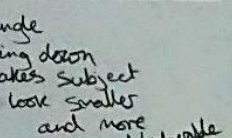 ngle
ing down
akes subject
look smaller
and more